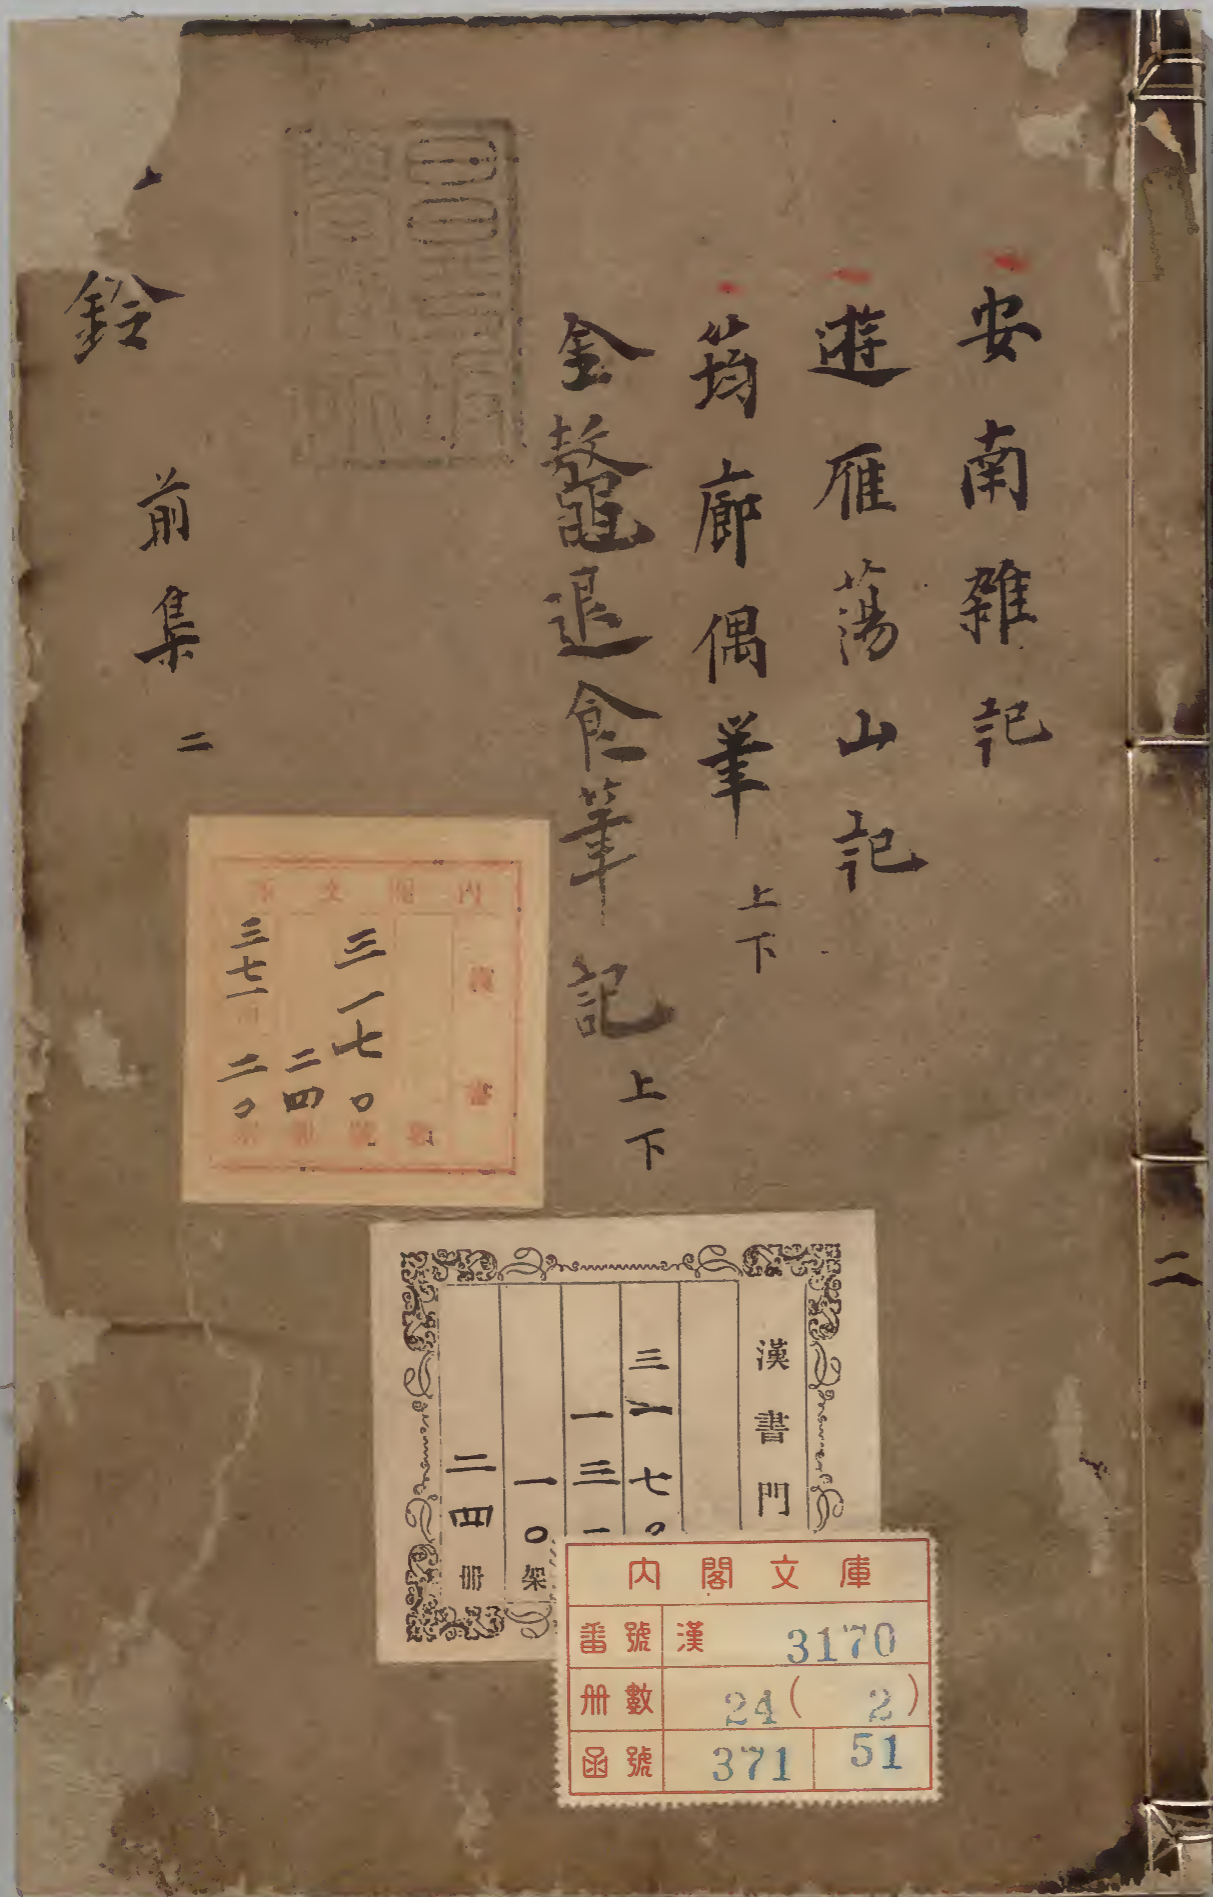 安南雜記
遊雁蕩山記
筠廊偶筆 上下
金鰲退食筆記 上下
鈴
前集 二
二
內閣文庫
漢書
三一七〇
二四
三七一 二〇
漢書門
三一七〇
一三一
一〇架
二四冊
內閣文庫
番號 漢 3170
冊數 24 ( 2 )
函號 371 51